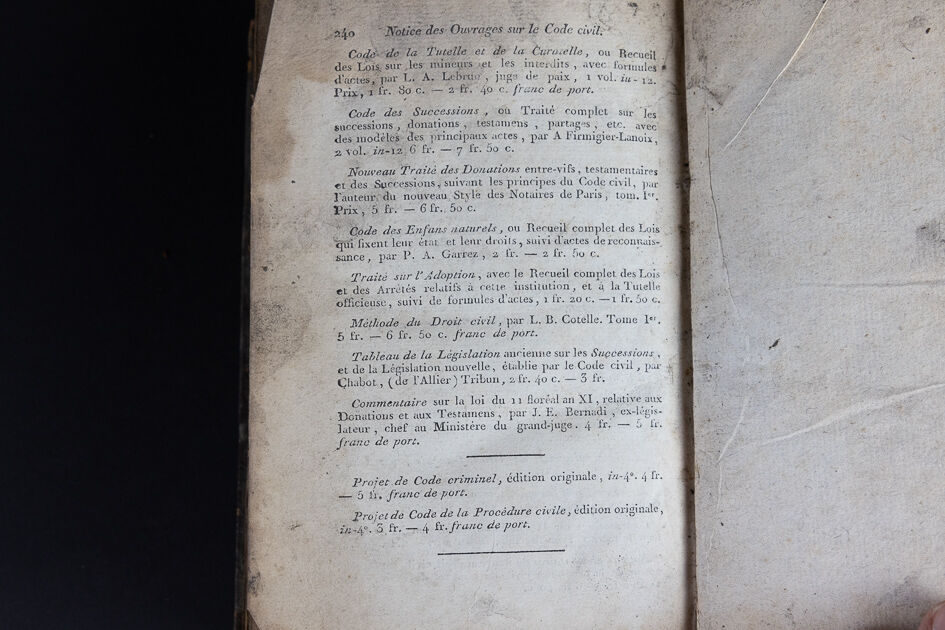 240 Notice des Ouvrages sur le Code civil.
Code de la Tutelle et de la Curatelle, ou Recueil
des Lois sur les mineurs et les interdits, avec formules
d'actes, par L. A. Lebrun, juge de paix, 1 vol. in-12.
Prix, 1 fr. 80 c. — 2 fr. 40 c. franc de port.
Code des Successions, ou Traité complet sur les
successions, donations, testamens, partages, etc. avec
des modèles des principaux actes, par A Firmigier-Lanoix,
2 vol. in-12 6 fr. — 7 fr. 50 c.
Nouveau Traité des Donations entre-vifs, testamentaires
et des Successions, suivant les principes du Code civil, par
l'auteur du nouveau Style des Notaires de Paris, tom. 1er.
Prix, 5 fr. — 6 fr. 50 c.
Code des Enfans naturels, ou Recueil complet des Lois
qui fixent leur état et leur droits, suivi d'actes de reconnais-
sance, par P. A. Garrez, 2 fr. — 2 fr. 50 c.
Traité sur l'Adoption, avec le Recueil complet des Lois
et des Arrêtés relatifs à cette institution, et à la Tutelle
officieuse, suivi de formules d'actes, 1 fr. 20 c. — 1 fr. 50 c.
Méthode du Droit civil, par L. B. Cotelle. Tome 1er.
5 fr. — 6 fr. 50 c. franc de port.
Tableau de la Législation ancienne sur les Successions,
et de la Législation nouvelle, établie par le Code civil, par
Chabot, (de l'Allier) Tribun, 2 fr. 40 c. — 3 fr.
Commentaire sur la loi du 11 floréal an XI, relative aux
Donations et aux Testamens, par J. E. Bernadi, ex-légis-
lateur, chef au Ministère du grand-juge. 4 fr. — 5 fr.
franc de port.
Projet de Code criminel, édition originale, in-4°. 4 fr.
— 5 fr. franc de port.
Projet de Code de la Procédure civile, édition originale,
in-4°. 3 fr. — 4 fr. franc de port.